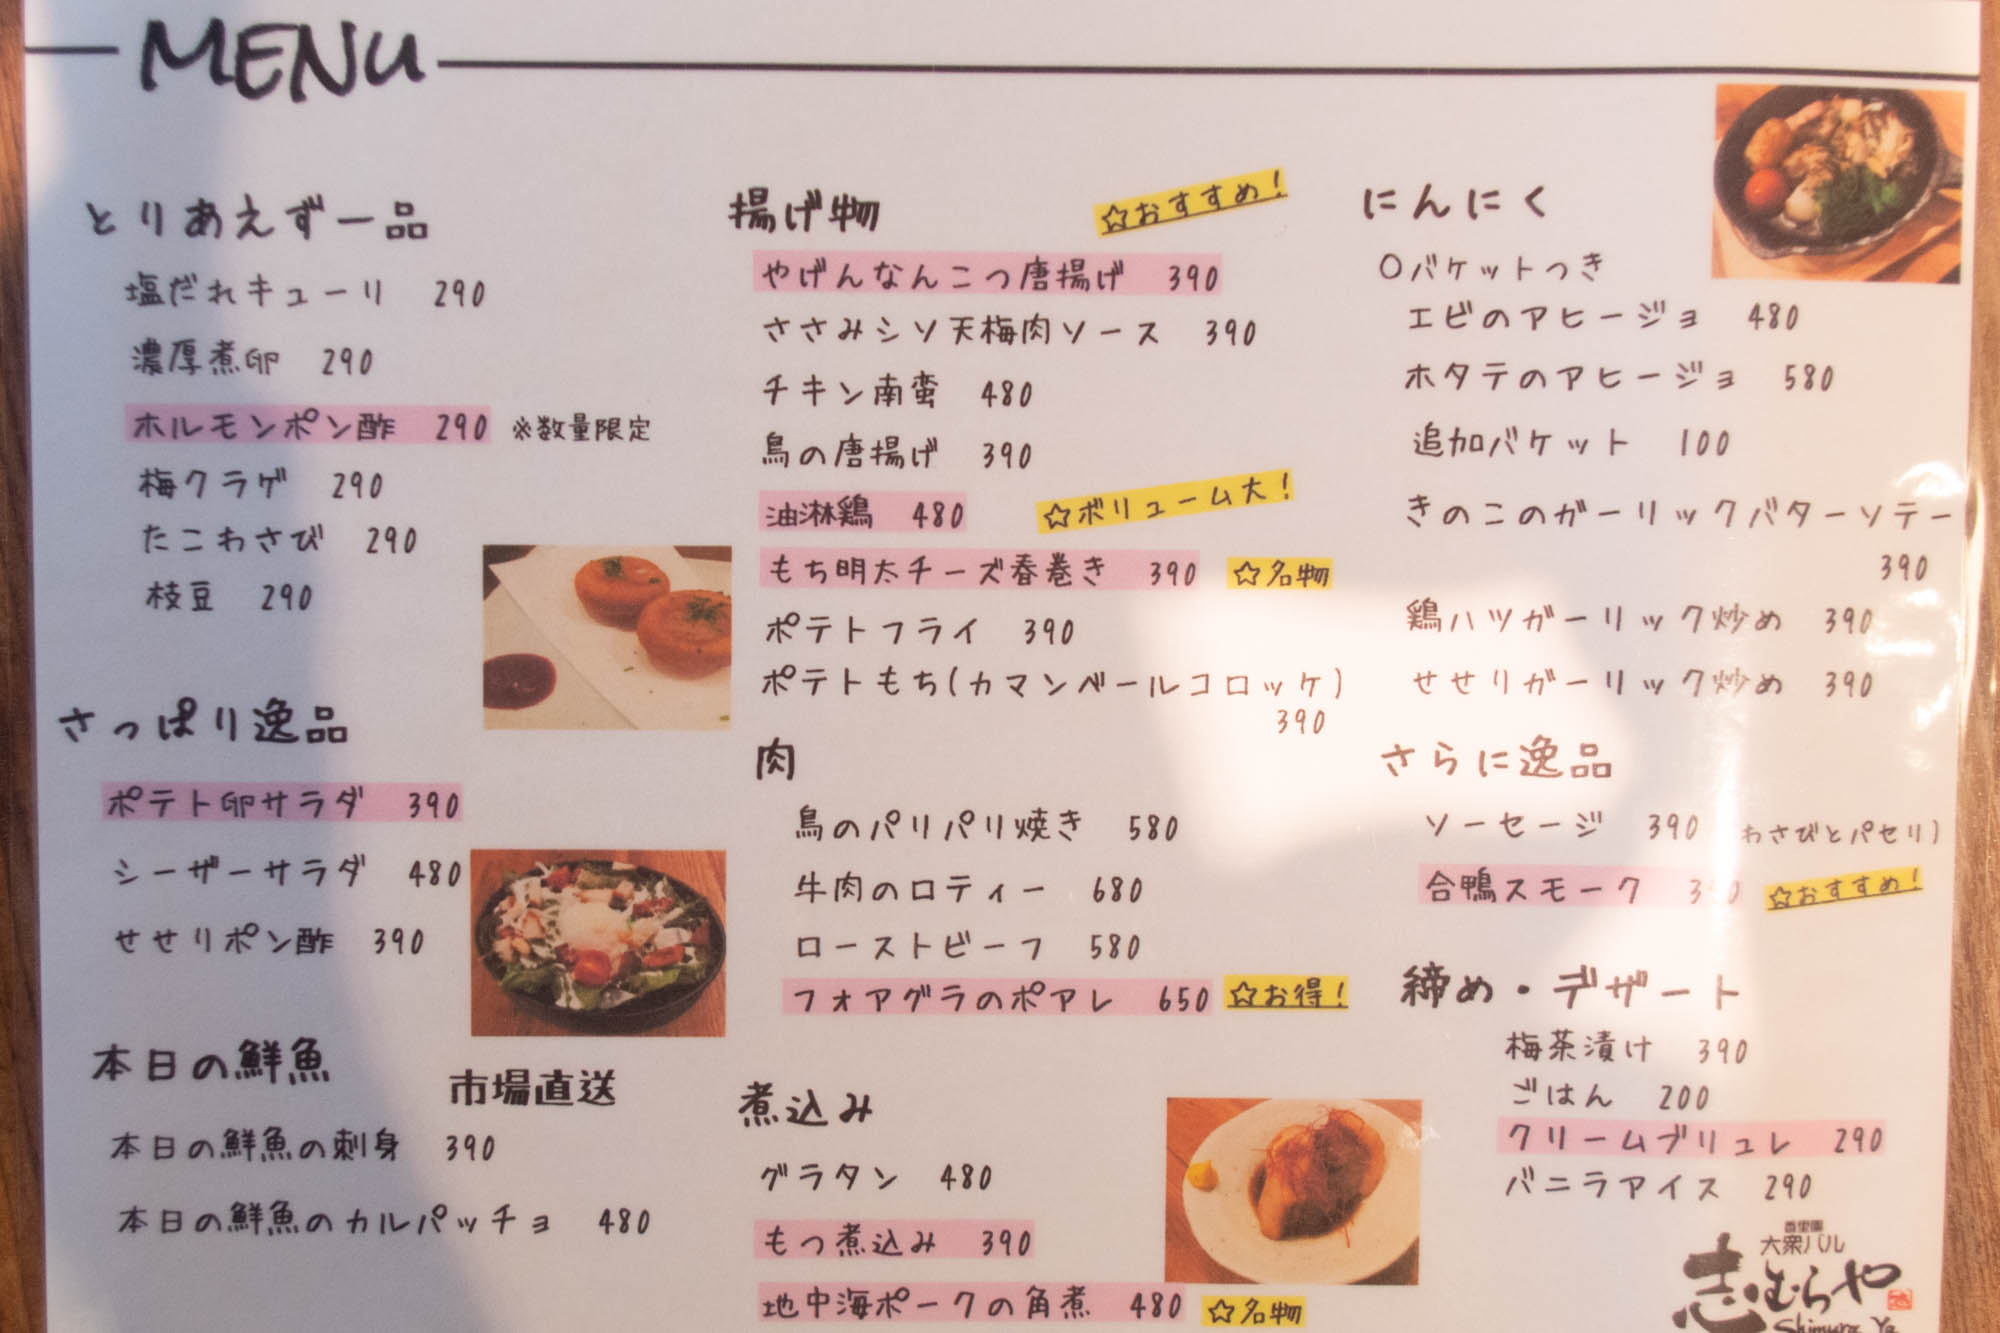 MENU
とりあえず一品
塩だれキューリ 290
濃厚煮卵 290
ホルモンポン酢 290 ※数量限定
梅クラゲ 290
たこわさび 290
枝豆 290
さっぱり逸品
ポテト卵サラダ 390
シーザーサラダ 480
せせりポン酢 390
本日の鮮魚 市場直送
本日の鮮魚の刺身 390
本日の鮮魚のカルパッチョ 480
揚げ物 ☆おすすめ!
やげんなんこつ唐揚げ 390
ささみシソ天梅肉ソース 390
チキン南蛮 480
鳥の唐揚げ 390
油淋鶏 480 ☆ボリューム大!
もち明太チーズ春巻き 390 ☆名物
ポテトフライ 390
ポテトもち(カマンベールコロッケ)
390
肉
鳥のパリパリ焼き 580
牛肉のロティー 680
ローストビーフ 580
フォアグラのポアレ 650 ☆お得!
煮込み
グラタン 480
もつ煮込み 390
地中海ポークの角煮 480 ☆名物
にんにく
○バケットつき
エビのアヒージョ 480
ホタテのアヒージョ 580
追加バケット 100
きのこのガーリックバターソテー
390
鶏ハツガーリック炒め 390
せせりガーリック炒め 390
さらに逸品
ソーセージ 390 わさびとパセリ)
合鴨スモーク 390 ☆おすすめ!
締め・デザート
梅茶漬け 390
ごはん 200
クリームブリュレ 290
バニラアイス 290
香里園
大衆バル
志むらや
Shimura Ya